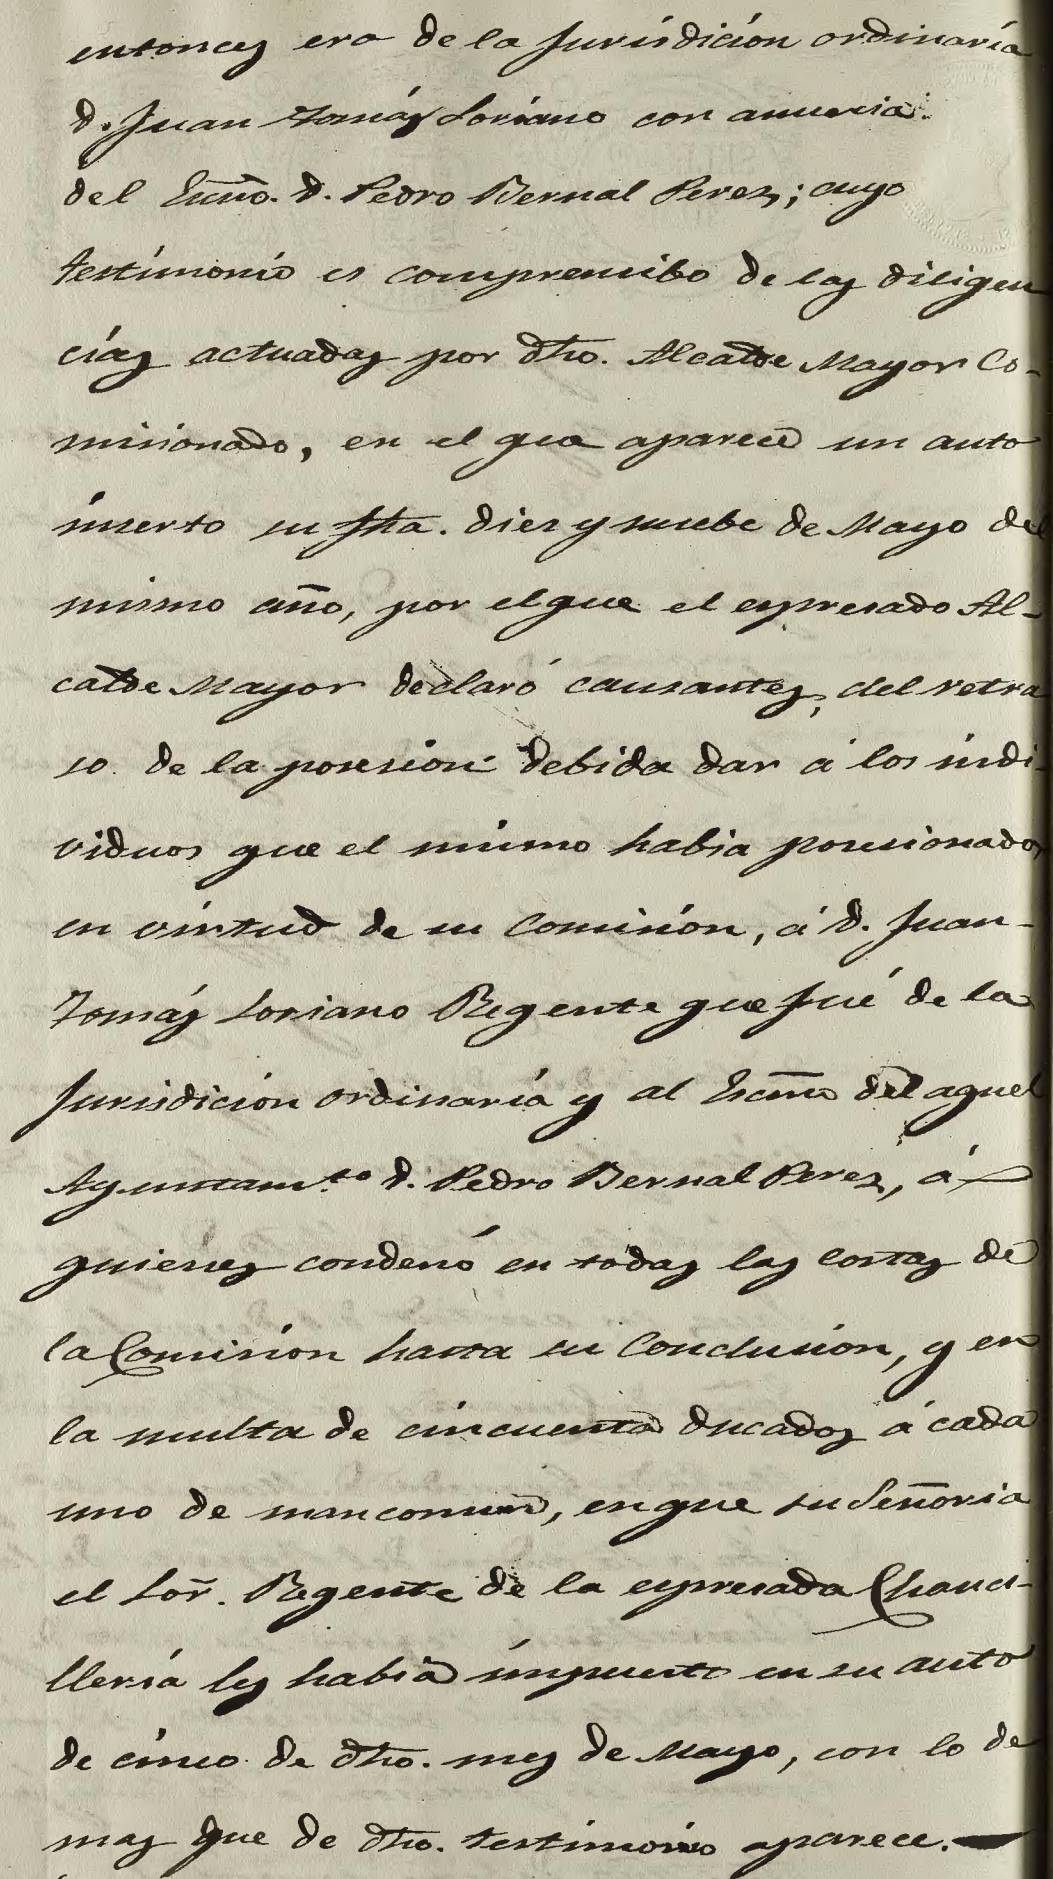 entonces era de la Jurisdicion ordinaria
D. Juan Tomás Soriano con anuencia
del Escño. D. Pedro Bernal Perez; cuyo
testimonio es comprensibo de las diligen
cias actuadas por dho. Alcalde Mayor Co-
misionado, en el que aparece un auto
inserto su fha. diez y nuebe de Mayo del
mismo año, por el que el espresado Al-
calde Mayor declaró causantes, del retra
so de la posesion debida dar á los indi-
viduos que el mismo habia posesionados
en virtud de su Comision, á D. Juan-
Tomás Soriano Regente que fué de la
Jurisdicion ordinaria y al Escnno del aquel
Ayuntam.to D. Pedro Bernal Perez, á
quienes condenó en todas las costas de
la Comision hasta su Conclusion, y en
la multa de cincuenta ducados á cada
uno de mancomun, en que su Señoria
el Sor. Regente de la espresada Chanci-
lleria les habia impuesto en su auto
de cinco de dho. mes de Mayo, con lo de
mas que de dho. testimonio aparece.